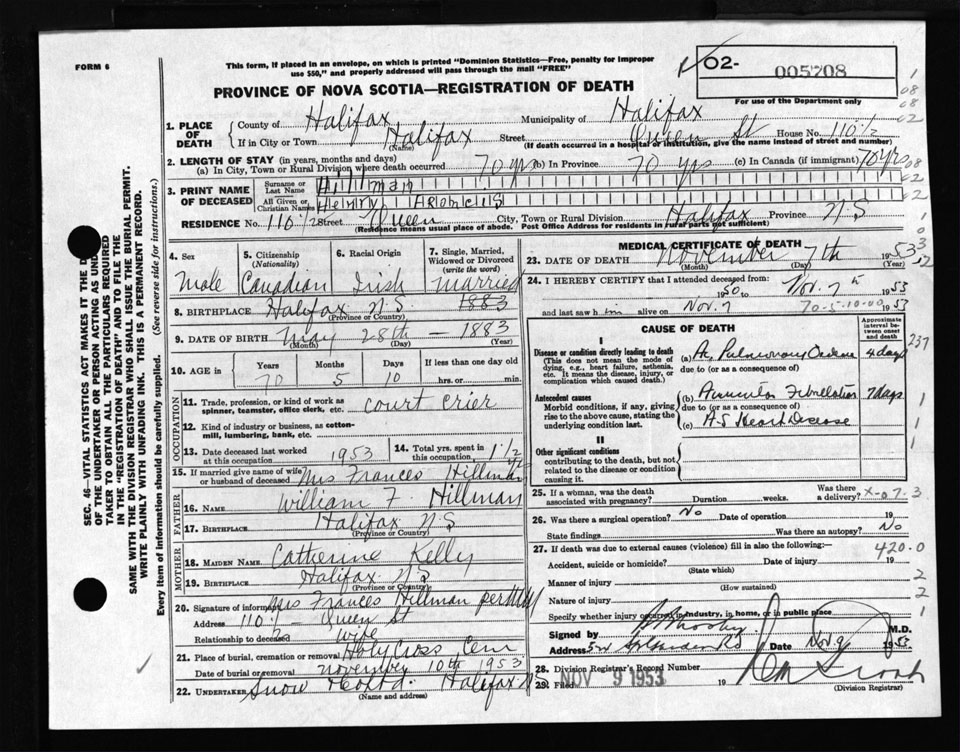 FORM 6
This form, if placed in an envelope, on which is printed "Dominion Statistics—Free, penalty for improper
use $50," and properly addressed will pass through the mail "FREE"
02- 005708
PROVINCE OF NOVA SCOTIA—REGISTRATION OF DEATH
For use of the Department only
1. PLACE OF DEATH
County of Halifax Municipality of Halifax
If in City or Town Halifax Street Queen St House No. 110 1/2
(Name) (If death occurred in a hospital or institution, give the name instead of street and number)
2. LENGTH OF STAY (in years, months and days)
(a) In City, Town or Rural Division where death occurred 70 yrs (b) In Province 70 yrs (c) In Canada (if immigrant) 70 yrs
3. PRINT NAME OF DECEASED
Surname or Last Name Hillman
All Given or Christian Names Henry
RESIDENCE No. 110 1/2 Street Queen City, Town or Rural Division Halifax Province N S
(Residence means usual place of abode. Post Office Address for residents in rural parts not sufficient)
4. Sex Male
5. Citizenship (Nationality) Canadian
6. Racial Origin Irish
7. Single, Married, Widowed or Divorced (write the word) Married
8. BIRTHPLACE Halifax N.S. 1883
(Province or Country)
9. DATE OF BIRTH May 28th — 1883
(Month) (Day) (Year)
10. AGE in Years 70 Months 5 Days 10 If less than one day old hrs. or min.
OCCUPATION
11. Trade, profession, or kind of work as spinner, teamster, office clerk, etc. court crier
12. Kind of industry or business, as cotton-mill, lumbering, bank, etc.
13. Date deceased last worked at this occupation 1953
14. Total yrs. spent in this occupation 1 1/2
15. If married give name of wife or husband of deceased Mrs Frances Hillman
FATHER
16. NAME William F Hillman
17. BIRTHPLACE Halifax N.S
(Province or Country)
MOTHER
18. MAIDEN NAME Catherine Kelly
19. BIRTHPLACE Halifax N.S
(Province or Country)
20. Signature of informant Mrs Frances Hillman per
Address 110 1/2 — Queen St
Relationship to deceased wife
21. Place of burial, cremation or removal Holy Cross Cem
Date of burial or removal November 10th 1953
22. UNDERTAKER Snow Halifax N S
(Name and address)
MEDICAL CERTIFICATE OF DEATH
23. DATE OF DEATH November 7th 1953
(Month) (Day) (Year)
24. I HEREBY CERTIFY that I attended deceased from:
1950 to Nov. 7th 1953
and last saw him alive on Nov. 7 1953
CAUSE OF DEATH
Approximate interval between onset and death
I
Disease or condition directly leading to death
(This does not mean the mode of dying, e.g., heart failure, asthenia, etc. It means the disease, injury, or complication which caused death.)
(a) Ac Pulmonary Oedema 4 days
due to (or as a consequence of)
Antecedent causes
Morbid conditions, if any, giving rise to the above cause, stating the underlying condition last.
(b) Auricular Fibrillation 7 days
due to (or as a consequence of)
(c) A-S Heart Disease
II
Other significant conditions
contributing to the death, but not related to the disease or condition causing it.
25. If a woman, was the death associated with pregnancy? Duration weeks. Was there a delivery? X-07-3
26. Was there a surgical operation? No Date of operation 19
State findings Was there an autopsy? No
27. If death was due to external causes (violence) fill in also the following:— 420.0
Accident, suicide or homicide? Date of injury 19
(State which)
Manner of injury
(How sustained)
Nature of injury
Specify whether injury occurred in industry, in home, or in public place
Signed by M.D.
Address Rd Date Nov 9 1953
28. Division Registrar's Record Number
29. Filed NOV 9 1953 19
(Division Registrar)
SEC. 46—VITAL STATISTICS ACT MAKES IT THE
OF THE UNDERTAKER OR PERSON ACTING AS UNDER
TAKER TO OBTAIN ALL THE PARTICULARS REQUIRED
IN THE "REGISTRATION OF DEATH" AND TO FILE THE
SAME WITH THE DIVISION REGISTRAR WHO SHALL ISSUE THE BURIAL PERMIT.
WRITE PLAINLY WITH UNFADING INK. THIS IS A PERMANENT RECORD.
Every item of information should be carefully supplied. (See reverse side for instructions.)